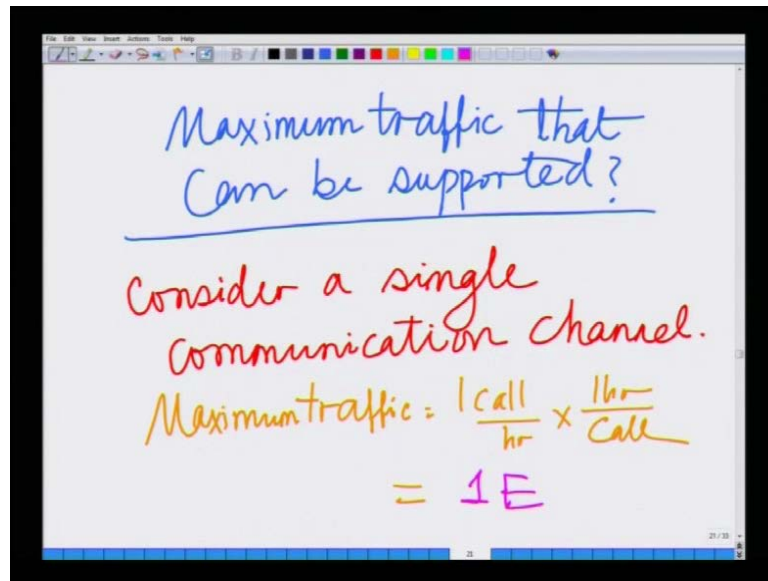 File Edit View Insert Actions Tools Help
Maximum traffic that
Can be supported?
Consider a single
communication channel.
Maximum traffic = 1 Call/hr × 1hr/Call
= 1E
21/33
21